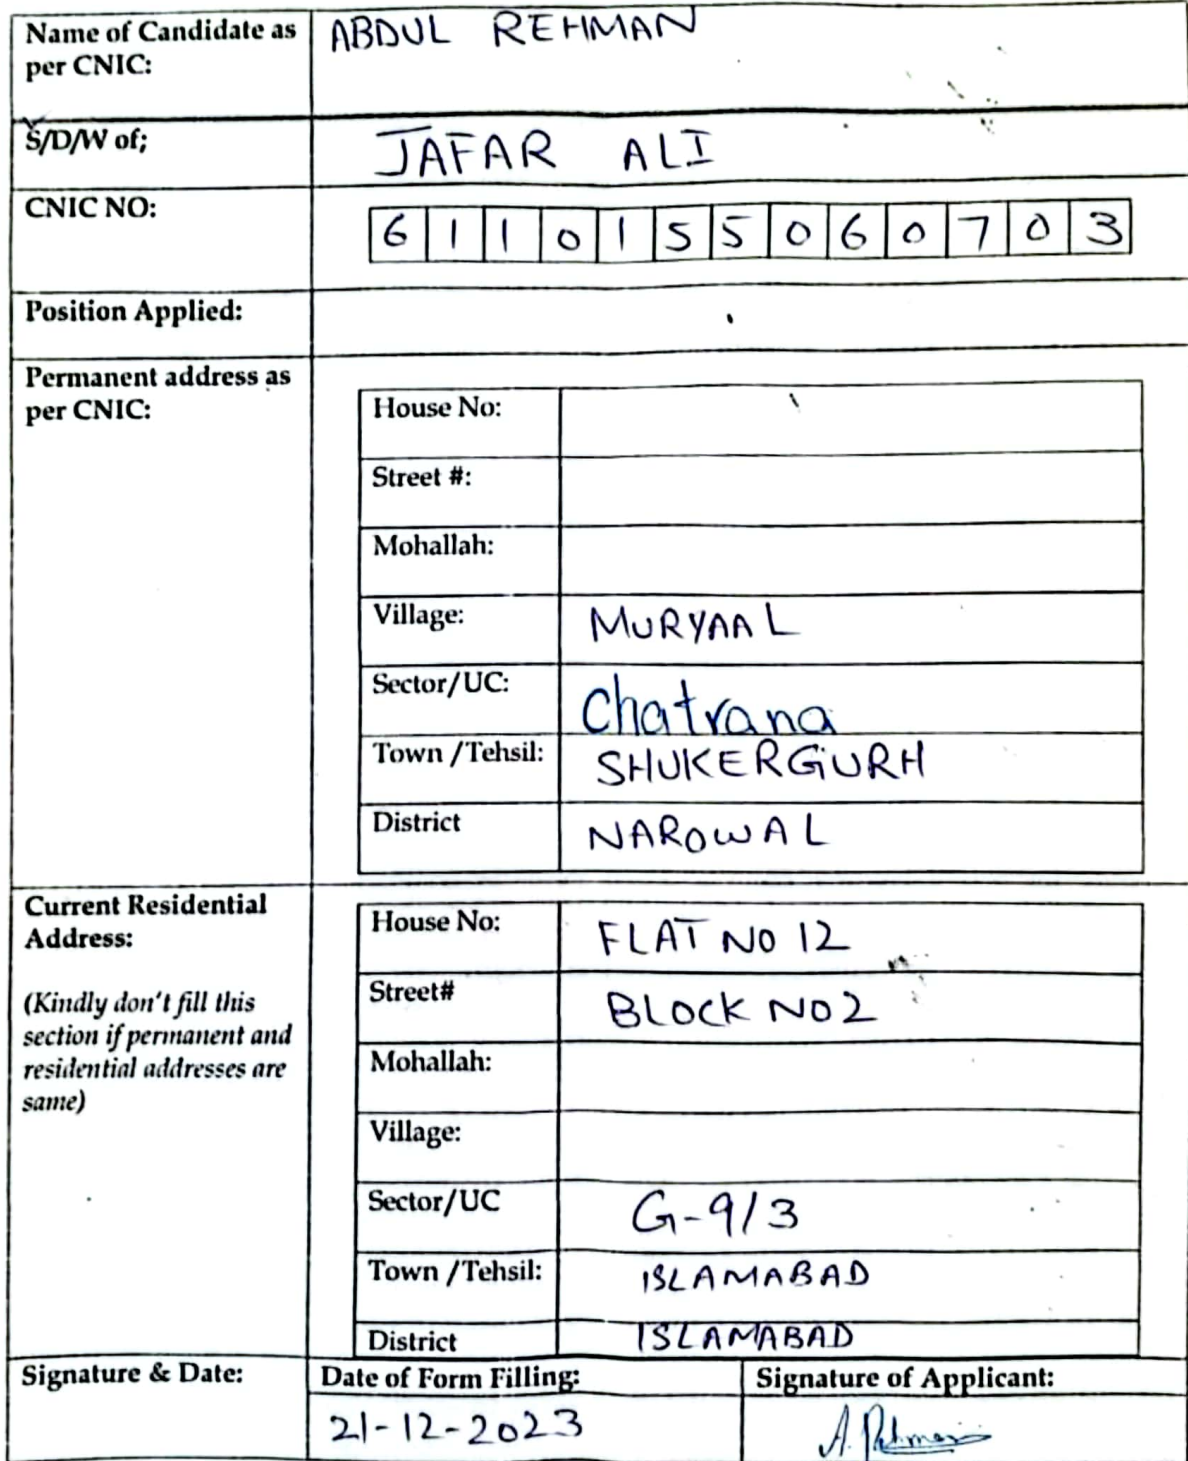 Name of Candidate as per CNIC: ABDUL REHMAN
S/D/W of; JAFAR ALI
CNIC NO: 6 1 1 0 1 5 5 0 6 0 7 0 3
Position Applied:
Permanent address as per CNIC:
House No:
Street #:
Mohallah:
Village: MURYAAL
Sector/UC: Chatrana
Town /Tehsil: SHUKERGURH
District NAROWAL
Current Residential Address:
(Kindly don't fill this section if permanent and residential addresses are same)
House No: FLAT NO 12
Street# BLOCK NO 2
Mohallah:
Village:
Sector/UC G-9/3
Town /Tehsil: ISLAMABAD
District ISLAMABAD
Signature & Date:
Date of Form Filling: 21-12-2023
Signature of Applicant: A. Rehman